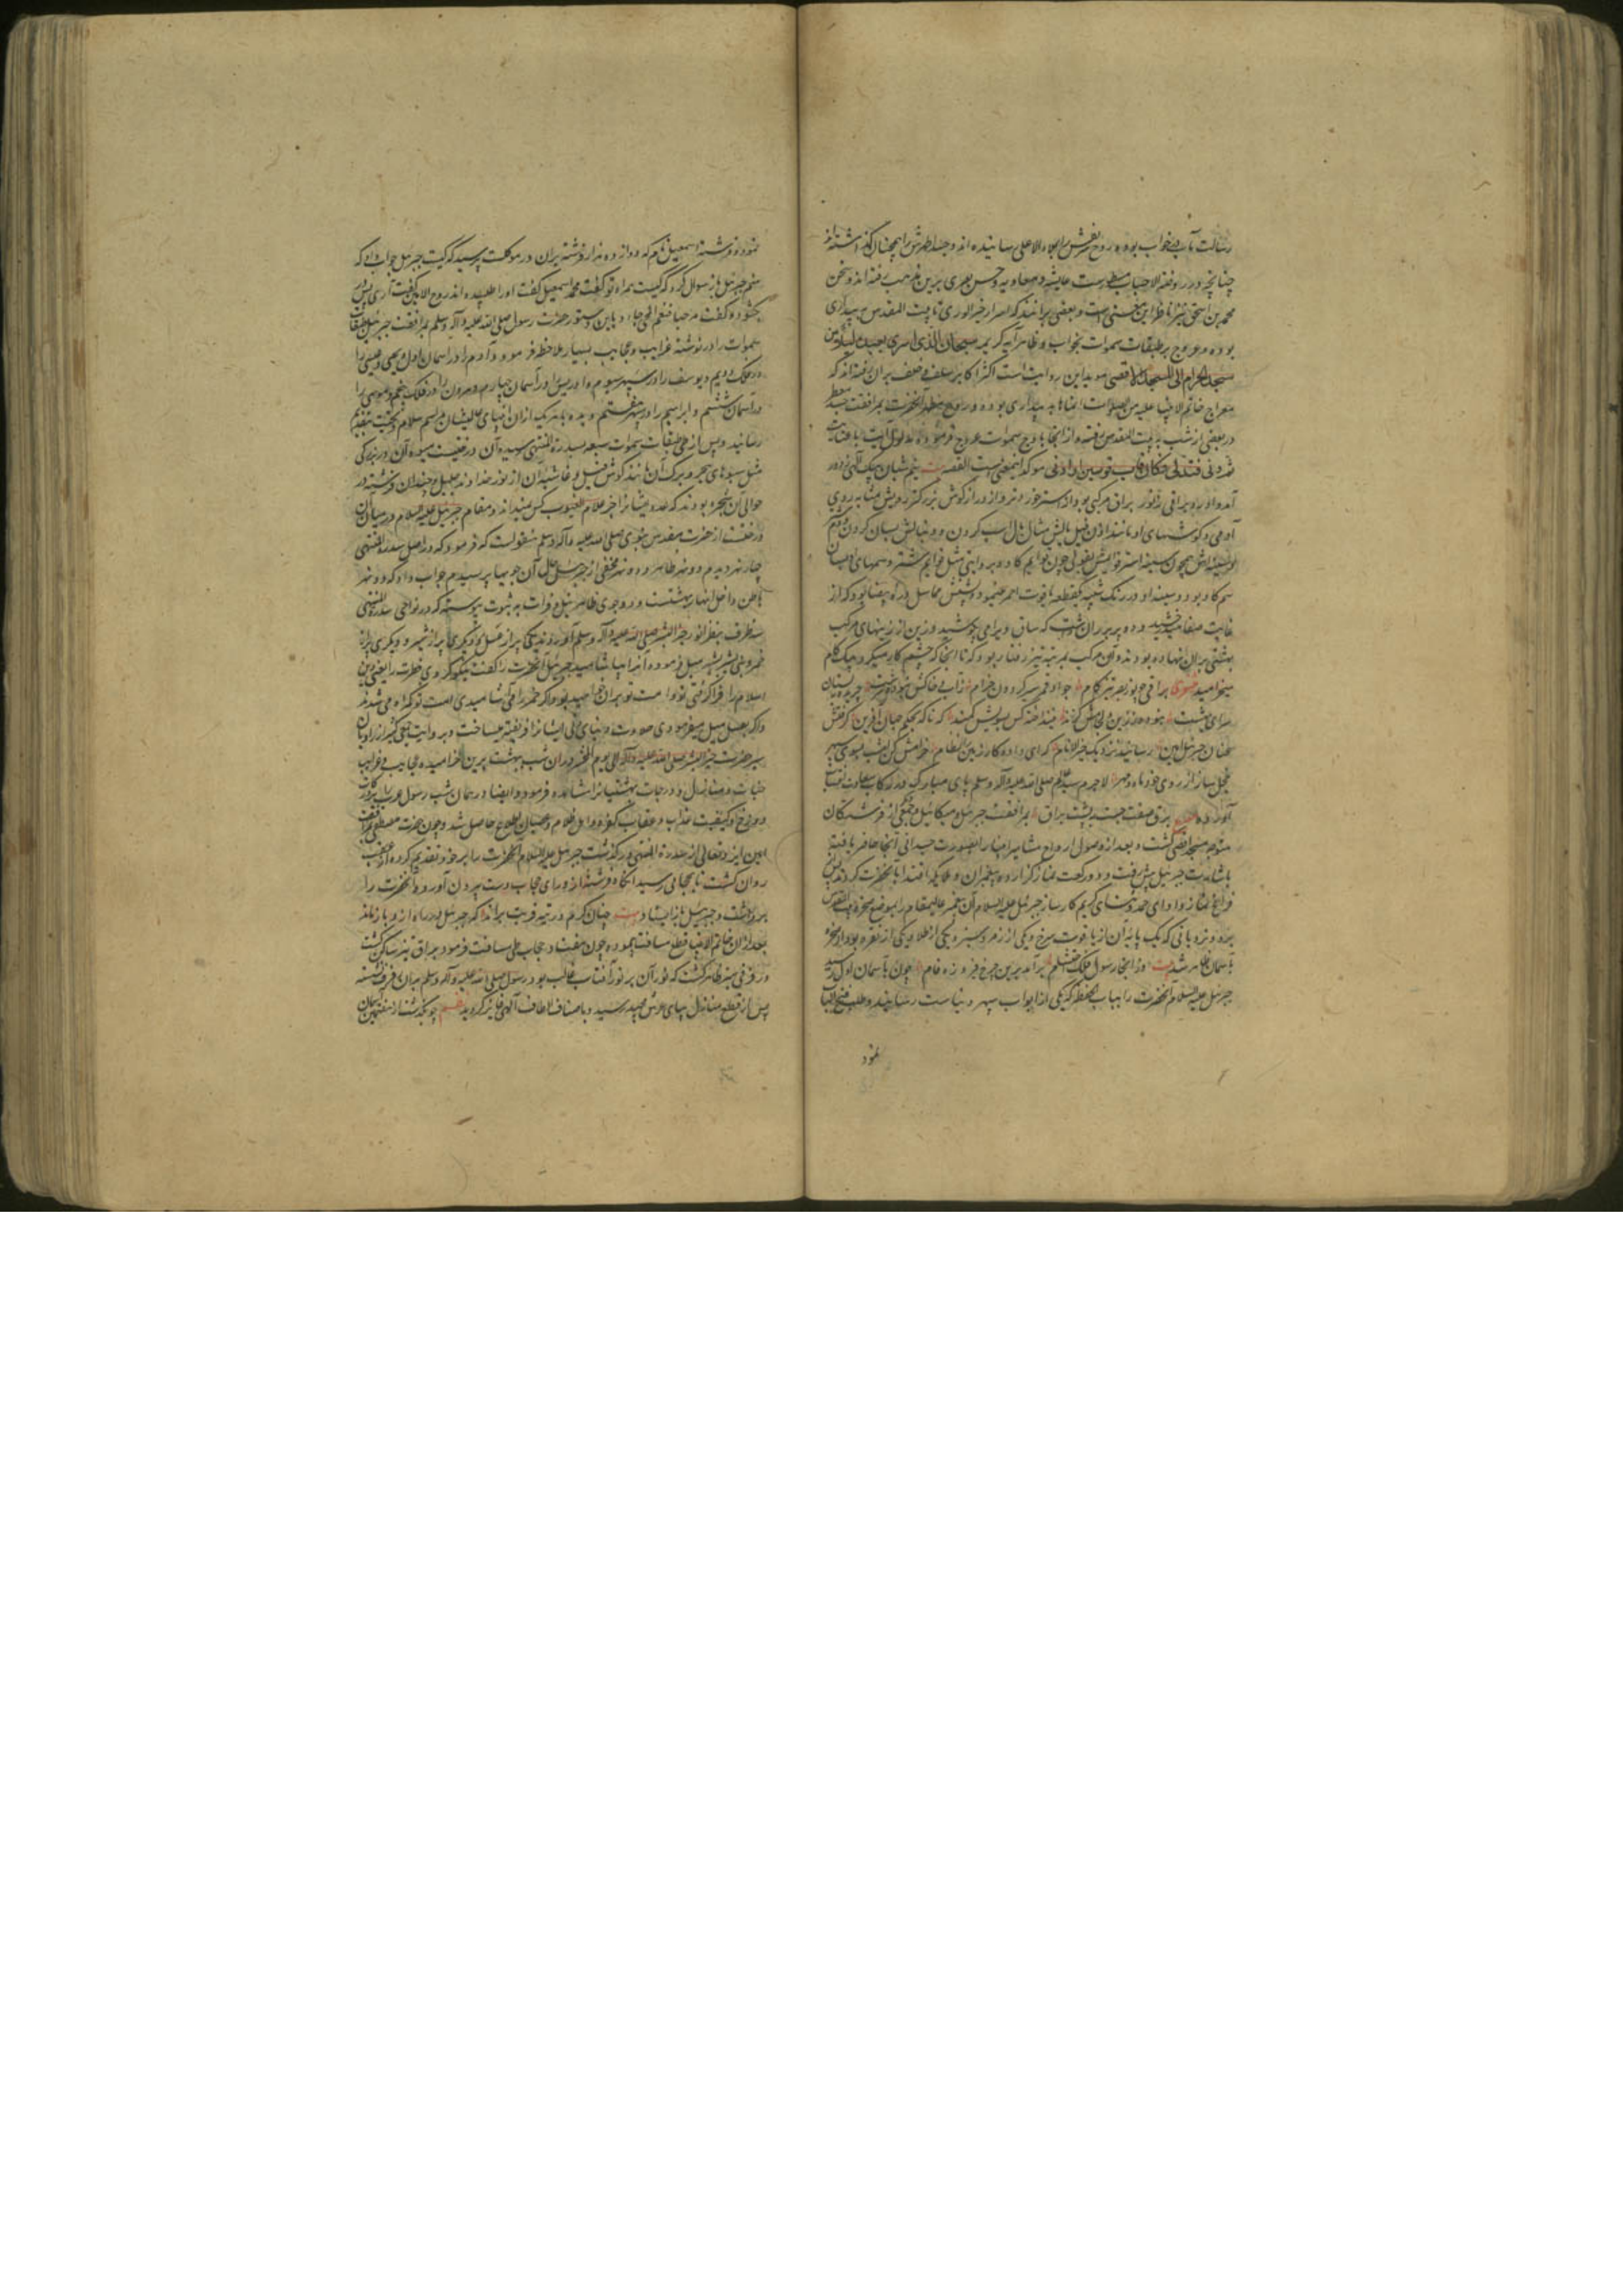 رسالت مآب در خواب بوده و روح مقدسش را بملاء الاعلی رسانیده اند و جسد اطهرش را همچنان گذاشته اند
چنانچه در روضة الاحباب مسطورست عایشه و معاویه و حسن بصری برین مذهب رفته اند و سخن
محمد بن اسحق نیز ناظر این معنی است و بعضی برانند که اسرار خیر الوری تا بیت المقدس به بیداری
بوده و عروج بر طبقات سموات بخواب و ظاهر آیه کریمه سبحان الذی اسری بعبده لیلا من
مسجد الحرام الی المسجد الاقصی موید این روایت است اکثر اکابر سلف و خلف بران رفته اند که
معراج خاتم الانبیا علیه من الصلوات انماها به بیداری بوده و روح مطهر آنحضرت بمرافقت جسد
در بعضی از شب به بیت المقدس رفته و از انجا باوج سموات عروج فرموده مدلول آیت با عنایت
ثم دنی فتدلی فکان قاب قوسین او ادنی موکد اینمعنی ست القصه نیم شبان پیک الهی ز دور
آمد و آورد براقی ز نور براق مرکبی بود از استر خردتر و از دراز گوش بزرگتر رویش مشابه روی
آدمی و گوشهای او مانند اذن فیل یالش مثال یال اسپ گردن و دنبالش بسان گردن و دم
شتر سینه اش همچون سینه استر قوایمش بقولی چون قوایم گاو و بروایتی مثل قوایم شتر و سمهای او بسان
سم گاو بود و سینه او در رنگ شبیه بقطعه یاقوت احمر مینمود و پشتش مماثل دره بیضا بود که از
غایت صفا میدرخشید و دو پر بر ران داشت که ساق ویرا می پوشید و زین از زینهای مرکب
بهشتی بران نهاده بودند و آن مرکب بمرتبه تیز رفتار بود که تا انجا که چشم کار میکرد بیک گام
میخرامید مثنوی براقی چو نور بصر تیز گام جواد قمر سیر گردون خرام
سرای بهشت
عنان جبرئیل امین رسانید نزدیک خیر الانام که ای داده کار زمین را نظام خرامش کن امشب بسوی سپهر
خجل ساز از روی خود ماه و مهر لاجرم سید عالم صلی الله علیه و آله و سلم پای مبارک در رکاب سعادت انتساب
آورده برق صفت جست بر پشت براق بمرافقت جبرئیل و میکائیل و جمعی از فرشتگان
متوجه مسجد اقصی گشت و بعد از وصول ارواح مشاهیر انبیا را بصورت جسدانی آنجا حاضر یافته
باشارت جبرئیل پیش رفت و دو رکعت نماز گزارده پیغمبران و ملایکه اقتدا بآنحضرت کردند پس
فراغ از نماز و ادای حمد و ثنای کریم کارساز جبرئیل علیه السلام آن پیغمبر عالیمقام را بموضع صخره بیت المقدس
برده و نردبانی که یک پایه آن از یاقوت سرخ و یکی از زمرد سبز و یکی از طلا و یکی از نقره بود از صخره
تا آسمان ظاهر شد بیت وز انجا رسول ملک محتشم برآمد برین چرخ فیروزه فام چون بآسمان اول رسید
جبرئیل علیه السلام آنحضرت را بباب الحفظه که یکی از ابواب سپهر دنیاست رسانیده و طلب فتح الباب
نمود
نمود و فرشته اسمعیل نام که دوازده هزار فرشته بران در موکلست پرسید که کیست جبرئیل جواب داد که
منم جبرئیل باز سوال کرد که کیست همراه تو گفت محمد اسمعیل گفت او را طلبیده اند روح الامین گفت آری پس در
بگشود و گفت مرحبا فنعم المجی جاء و باین دستور حضرت رسول صلی الله علیه و آله و سلم بمرافقت جبرئیل طبقات
سموات را در نوشته غرایب و عجایب بسیار ملاحظه فرمود و آدم را در آسمان اول و یحیی و عیسی را
در فلک دویم و یوسف را در سپهر سیوم و ادریس را در آسمان چهارم و هرون را در فلک پنجم و موسی را
در آسمان ششم و ابراهیم را در سپهر هفتم دیده با هر یک از ان انبیای عالیشان مراسم سلام و تحیت بتقدیم
رسانید و پس از طی طبقات سموات سبعه بسدرة المنتهی رسید و آن درختیست میوه آن در بزرگی
مثل سبوهای هجر و برگ آن مانند گوش فیل و غاشیه آن از نور خداوند جلیل و چندان فرشته در
حوالی آن شجره بودند که عدد ایشانرا جز علام الغیوب کس نمیداند و مقام جبرئیل علیه السلام در میان آن
درختست از حضرت مقدس نبوی صلی الله علیه و آله و سلم منقولست که فرمود که در اصل سدرة المنتهی
چهار نهر دیدم دو نهر ظاهر و دو نهر مخفی از جبرئیل حال آن جویها پرسیدم جواب داد که دو نهر
باطن داخل انهار بهشتست و دو جوی ظاهر نیل و فرات به ثبوت پیوسته که در نواحی سدرة المنتهی
سه ظرف بنظر انور خیر البشر صلی الله علیه و آله و سلم آوردند یکی پر از عسل و دیگری پر از شیر و دیگری پر از
خمر و نبی بشیر بشیر میل فرموده آنرا بیاشامید جبرئیل آنحضرت را گفت نیکو کردی فطرت را یعنی دین
اسلام را فرا گرفتی تو و امت تو بران خواهید بود و اگر خمر را می آشامیدی امت تو گمراه می شدند
و اگر بعسل میل میفرمودی حلاوت دنیای دنی ایشانرا فریفته میساخت و بروایت جمعی کثیر از راویان
سیر حضرت خیر البشر صلی الله علیه و آله الی یوم المحشر دران شب ببهشت برین خرامیده عجایب و غرایب
جنات و منازل و درجات بهشتیانرا مشاهده فرمود و ایضا در همان شب رسول عرب را بر درکات
دوزخ و کیفیت عذاب و عقاب کفره و اهل ظلام و عصیان اطلاع حاصل شد و چون حضرت مصطفی بمرافقت
امین ایزد تعالی از سدرة المنتهی در گذشت جبرئیل علیه السلام آنحضرت را بر خود تقدیم کرده از عقب
روان گشت تا بحجابی رسید آنگاه فرشته از ورای حجاب دست بیرون آورد و آنحضرت را
برداشت و جبرئیل باز ایستاد بیت چنان گرم در تیه قربت براند که جبرئیل در راه ازو باز ماند
بعد از ان خاتم الانبیا قطع مسافت نموده چون هفتاد حجاب طی مسافت فرمود براق نیز ساکن گشت
و رفرفی سبز ظاهر گشت که نور آن بر نور آفتاب غالب بود رسول صلی الله علیه و آله و سلم بران رفرف نشسته
پس از قطع منازل بپای عرش مجید رسید و باصناف الطاف الهی فایز گردید نظم چو بگذشت از هفتمین آسمان